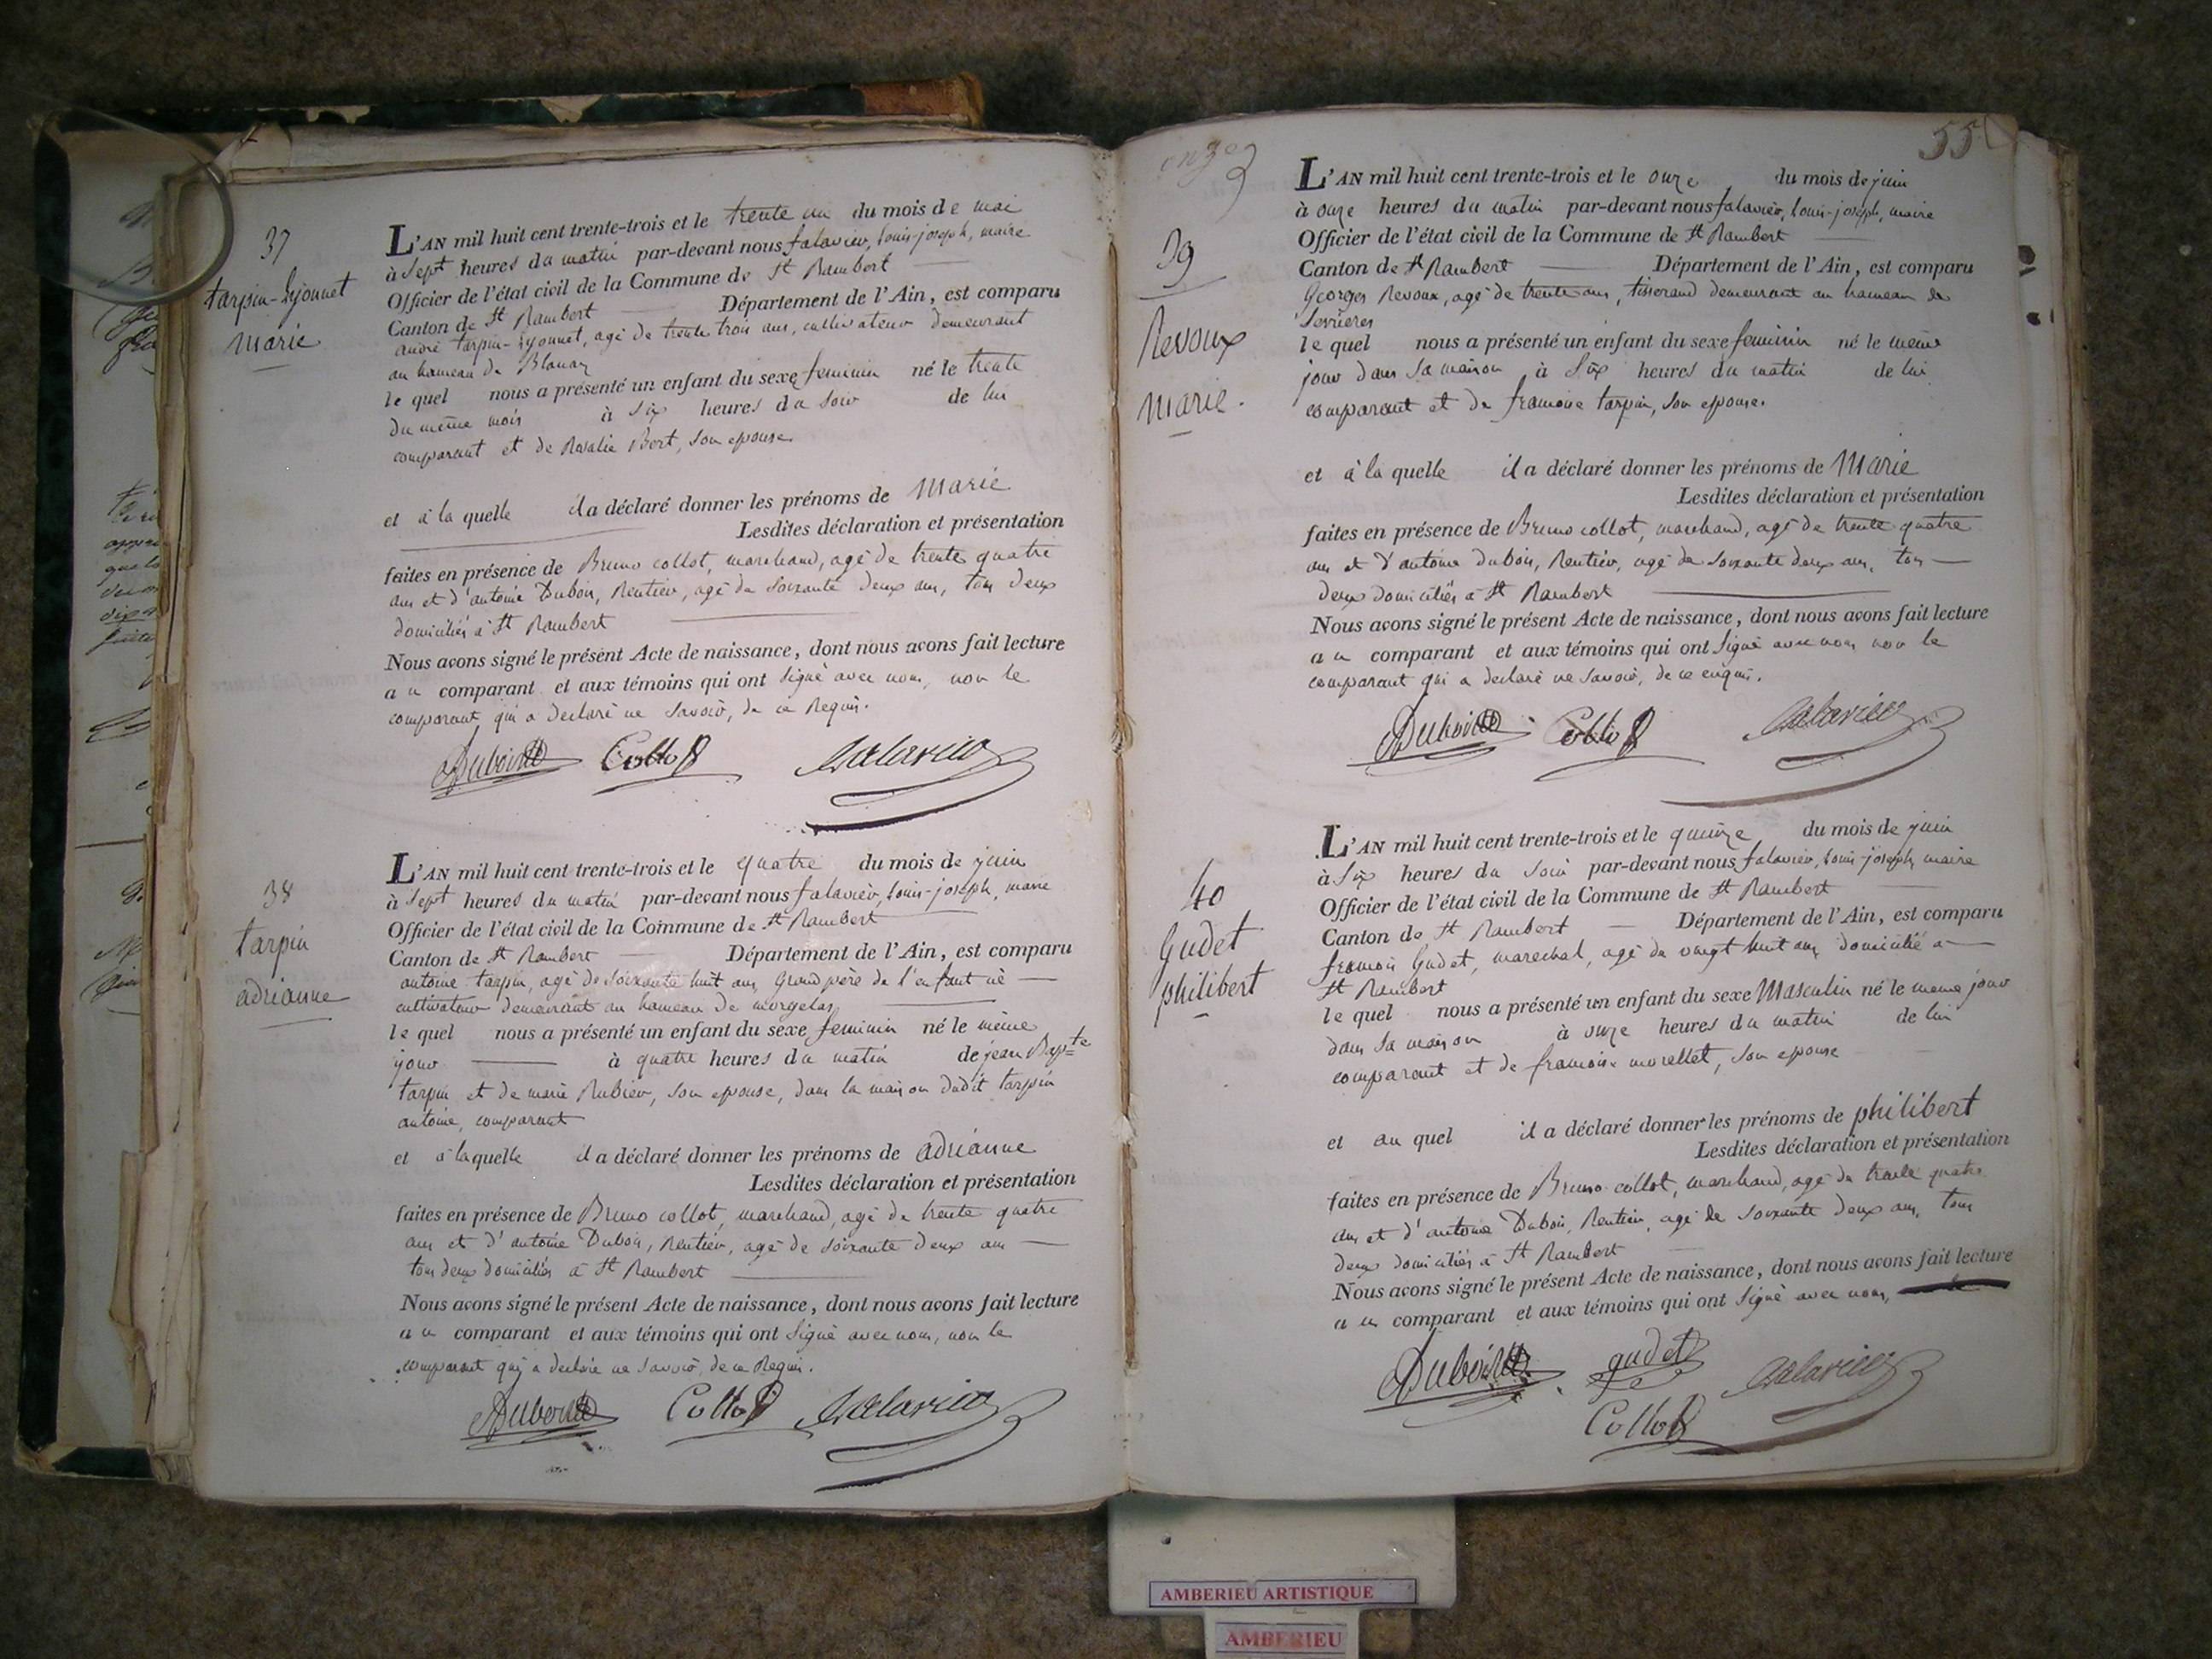 37
tarpin-Lyonnet
marie
L'AN mil huit cent trente-trois et le trente un du mois de mai
à sept heures du matin par-devant nous falavier, louis-joseph, maire
Officier de l'état civil de la Commune de St Rambert
Canton de St Rambert Département de l'Ain, est comparu
andré tarpin-Lyonnet, agé de trente trois ans, cultivateur demeurant
au hameau de Blanaz
le quel nous a présenté un enfant du sexe feminin né le trente
du même mois à six heures du soir de lui
comparant et de Rosalie Bert, son epouse
et à la quelle il a déclaré donner les prénoms de Marie
Lesdites déclaration et présentation
faites en présence de Bruno collot, marchand, agé de trente quatre
ans et d'antoine Dubois, Rentier, agé de soixante deux ans, tous deux
domiciliés à St Rambert
Nous avons signé le présent Acte de naissance, dont nous avons fait lecture
au comparant et aux témoins qui ont signé avec nous, non le
comparant qui a declaré ne savoir, de ce Requis.
Dubois Collot falavier
38
tarpin
adrianne
L'AN mil huit cent trente-trois et le quatre du mois de juin
à sept heures du matin par-devant nous falavier, louis-joseph, maire
Officier de l'état civil de la Commune de St Rambert
Canton de St Rambert Département de l'Ain, est comparu
antoine tarpin, agé de soixante huit ans, Grand père de l'enfant né
cultivateur demeurant au hameau de morgelas
le quel nous a présenté un enfant du sexe feminin né le même
jour à quatre heures du matin de jean Bapte
tarpin et de marie Rubier, son epouse, dans la maison dudit tarpin
antoine, comparant
et à laquelle il a déclaré donner les prénoms de adrianne
Lesdites déclaration et présentation
faites en présence de Bruno collot, marchand, agé de trente quatre
ans et d'antoine Dubois, Rentier, agé de soixante deux ans
tous deux domiciliés à St Rambert
Nous avons signé le présent Acte de naissance, dont nous avons fait lecture
au comparant et aux témoins qui ont signé avec nous, non le
comparant qui a declaré ne savoir, de ce Requis.
Dubois Collot falavier
onze
55
39
Revoux
marie.
L'AN mil huit cent trente-trois et le onze du mois de juin
à onze heures du matin par-devant nous falavier, louis-joseph, maire
Officier de l'état civil de la Commune de St Rambert
Canton de St Rambert Département de l'Ain, est comparu
Georges Revoux, agé de trente ans, tisserand demeurant au hameau de
Serrieres
le quel nous a présenté un enfant du sexe feminin né le même
jour dans sa maison à six heures du matin de lui
comparant et de francoise tarpin, son epouse.
et à la quelle il a déclaré donner les prénoms de Marie
Lesdites déclaration et présentation
faites en présence de Bruno collot, marchand, agé de trente quatre
ans et d'antoine dubois, Rentier, agé de soixante deux ans, tous
deux domiciliés à St Rambert
Nous avons signé le présent Acte de naissance, dont nous avons fait lecture
au comparant et aux témoins qui ont signé avec nous non le
comparant qui a declaré ne savoir, de ce enquis.
Dubois Collot falavier
40
Gudet
philibert
L'AN mil huit cent trente-trois et le quinze du mois de juin
à six heures du soir par-devant nous falavier, louis-joseph, maire
Officier de l'état civil de la Commune de St Rambert
Canton de St Rambert Département de l'Ain, est comparu
francois Gudet, marechal, agé de vingt huit ans, domicilié à
St Rambert
le quel nous a présenté un enfant du sexe Masculin né le même jour
dans sa maison à onze heures du matin de lui
comparant et de francoise morellet, son epouse
et au quel il a déclaré donner les prénoms de philibert
Lesdites déclaration et présentation
faites en présence de Bruno collot, marchand, agé de trente quatre
ans et d'antoine Dubois, Rentier, agé de soixante deux ans, tous
deux domiciliés à St Rambert
Nous avons signé le présent Acte de naissance, dont nous avons fait lecture
au comparant et aux témoins qui ont signé avec nous,
Dubois gudet falavier
Collot
AMBERIEU ARTISTIQUE
AMBERIEU